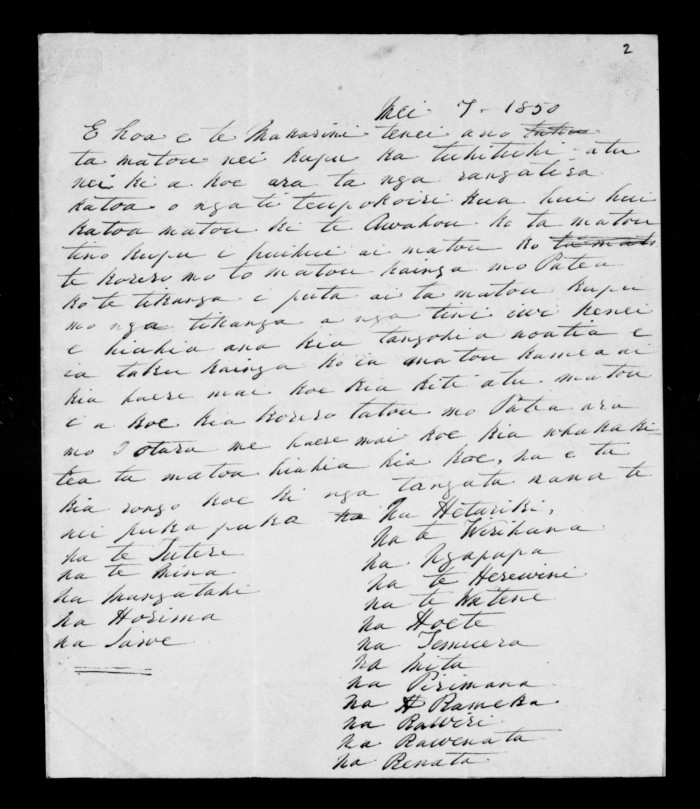 2
Mei 7 - 1850
E hoa e te Makarini tenei ano tatou
ta matou nei kupu ka tuhituhi atu
nei ki a koe ara ta nga rangatira
katoa o ngati teupokoiri kua hui hui
katoa matou ki te Awahou ko ta matou
tino kupu i huihui ai matou ko ta mato
te korero mo to matou kainga mo Patea
ko te tikanga i puta ai ta matou kupu
mo nga tikanga a nga tini iwi kenei
e hiahia ana kia tangohia noatia e
ia taku kainga koia matou ka mea ai
kia haere mai koe kia kite atu matou
i a koe kia korero tatou mo Patea ara
mo Otara me haere mai koe kia whakaki-
tea ta matou hiahia kia koe, ha e ta
kia rongo koe ki nga tangata nana te
nei puka puka ha Na Hetariki,
Na te Wirihana
na Ngapapa
na te Herewini
na te Watene
na Hoete
na Temuera
na Mita
na Pirimana
na H Rameka
na Rawiri
na Rawenata
na Renata
na te Tuteri
na te Mina
na Mangatahi
na Horima
na Taiwe